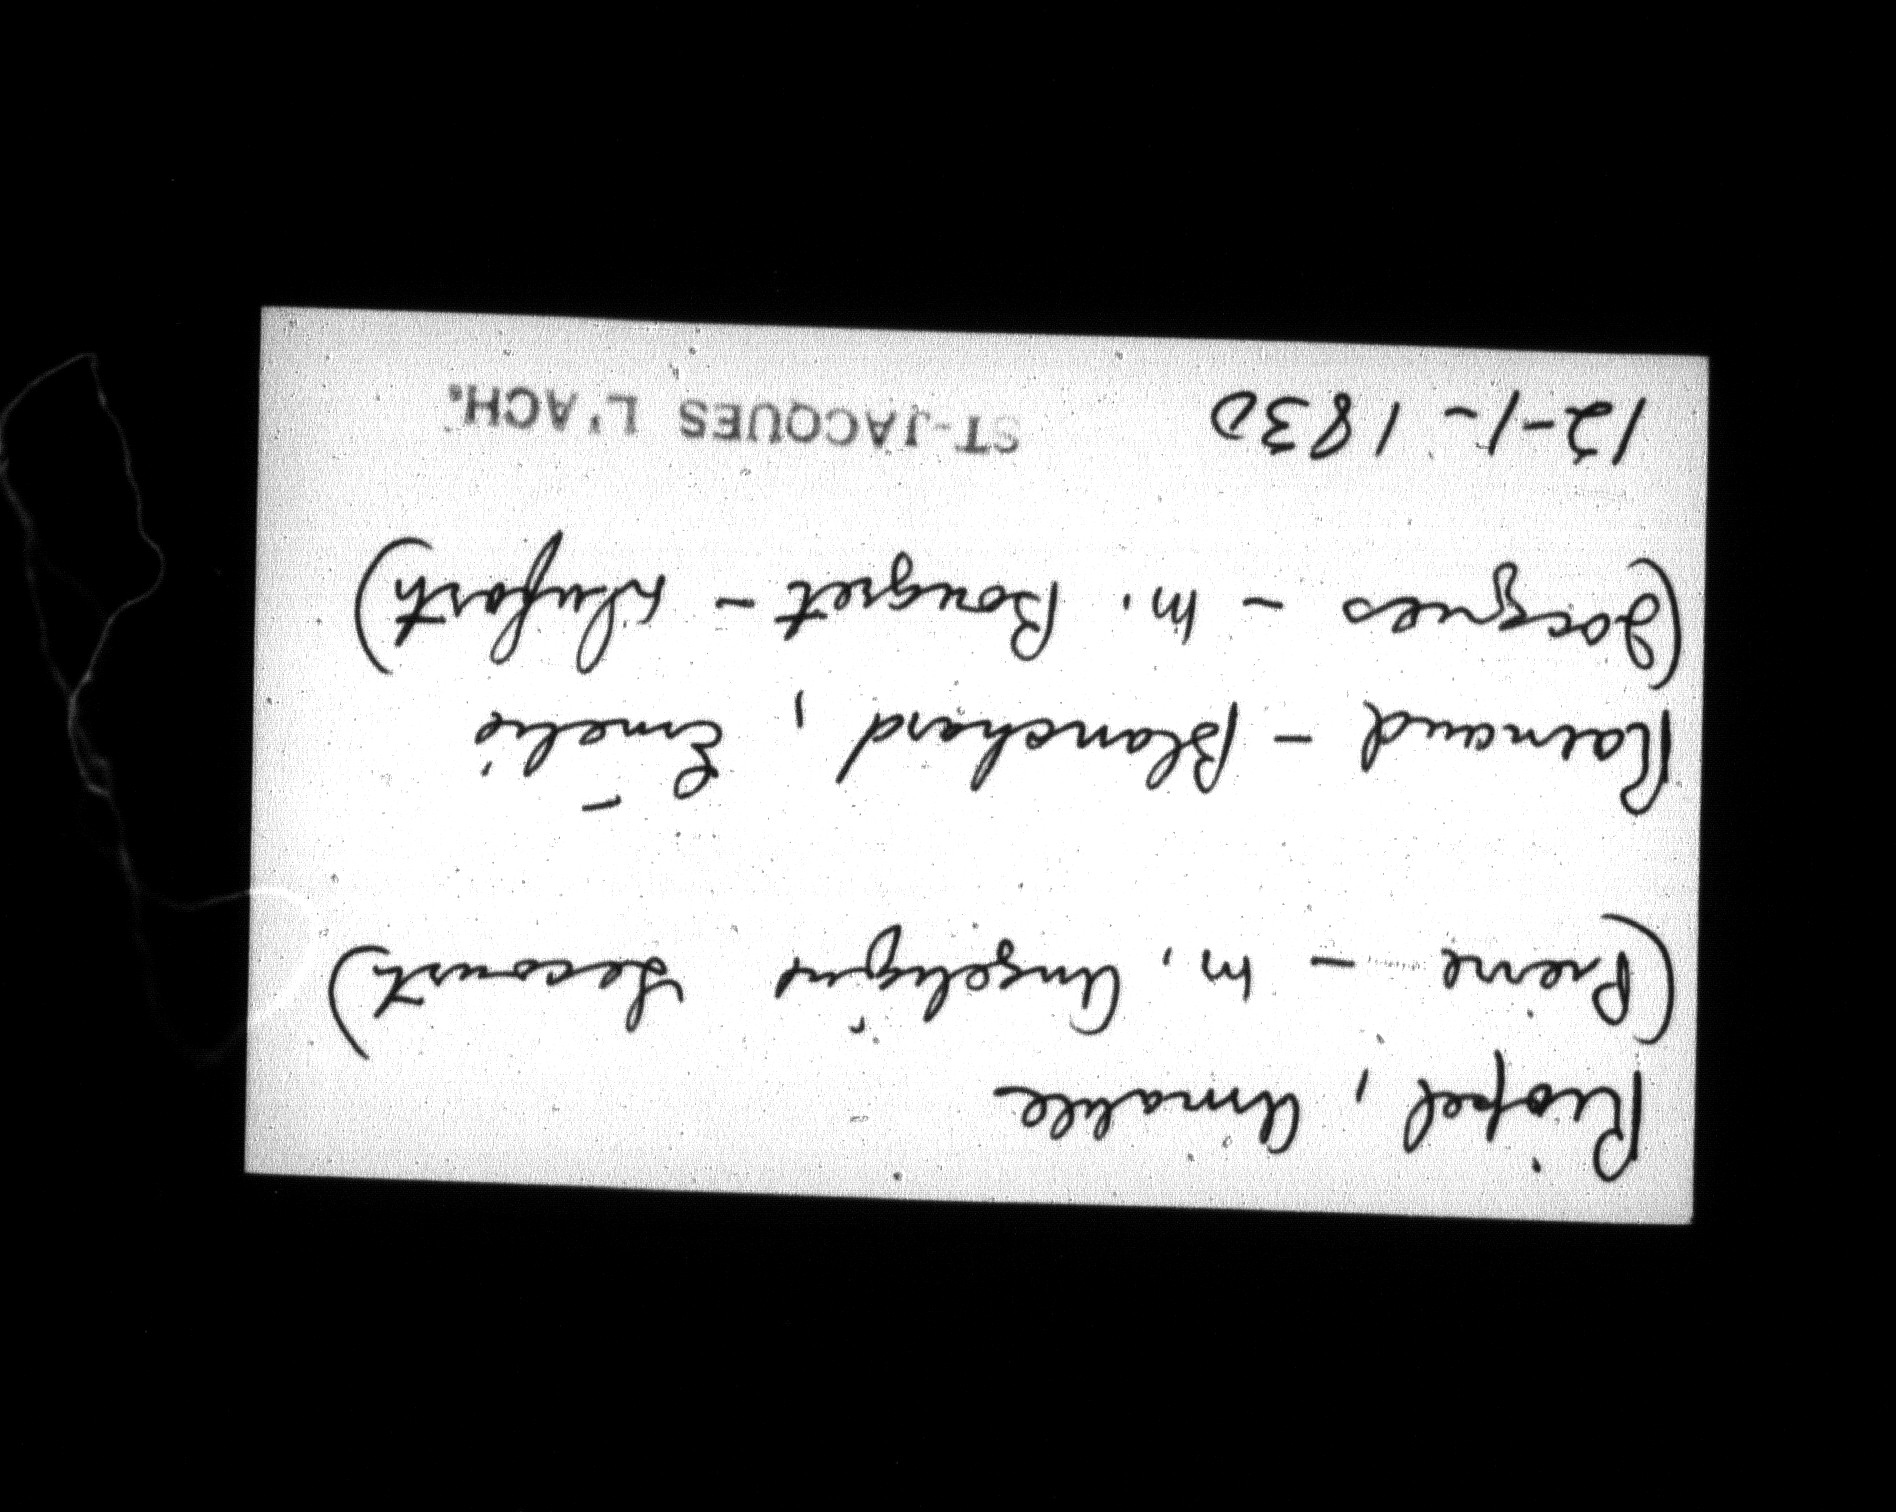 Riopel, Amable
(Pierre - m. Angelique Lecourt)
Rainaud - Blanchard, Emelie
(Jacques - m. Bougret - Dufort)
12-1-1830 ST-JACQUES L'ACH.